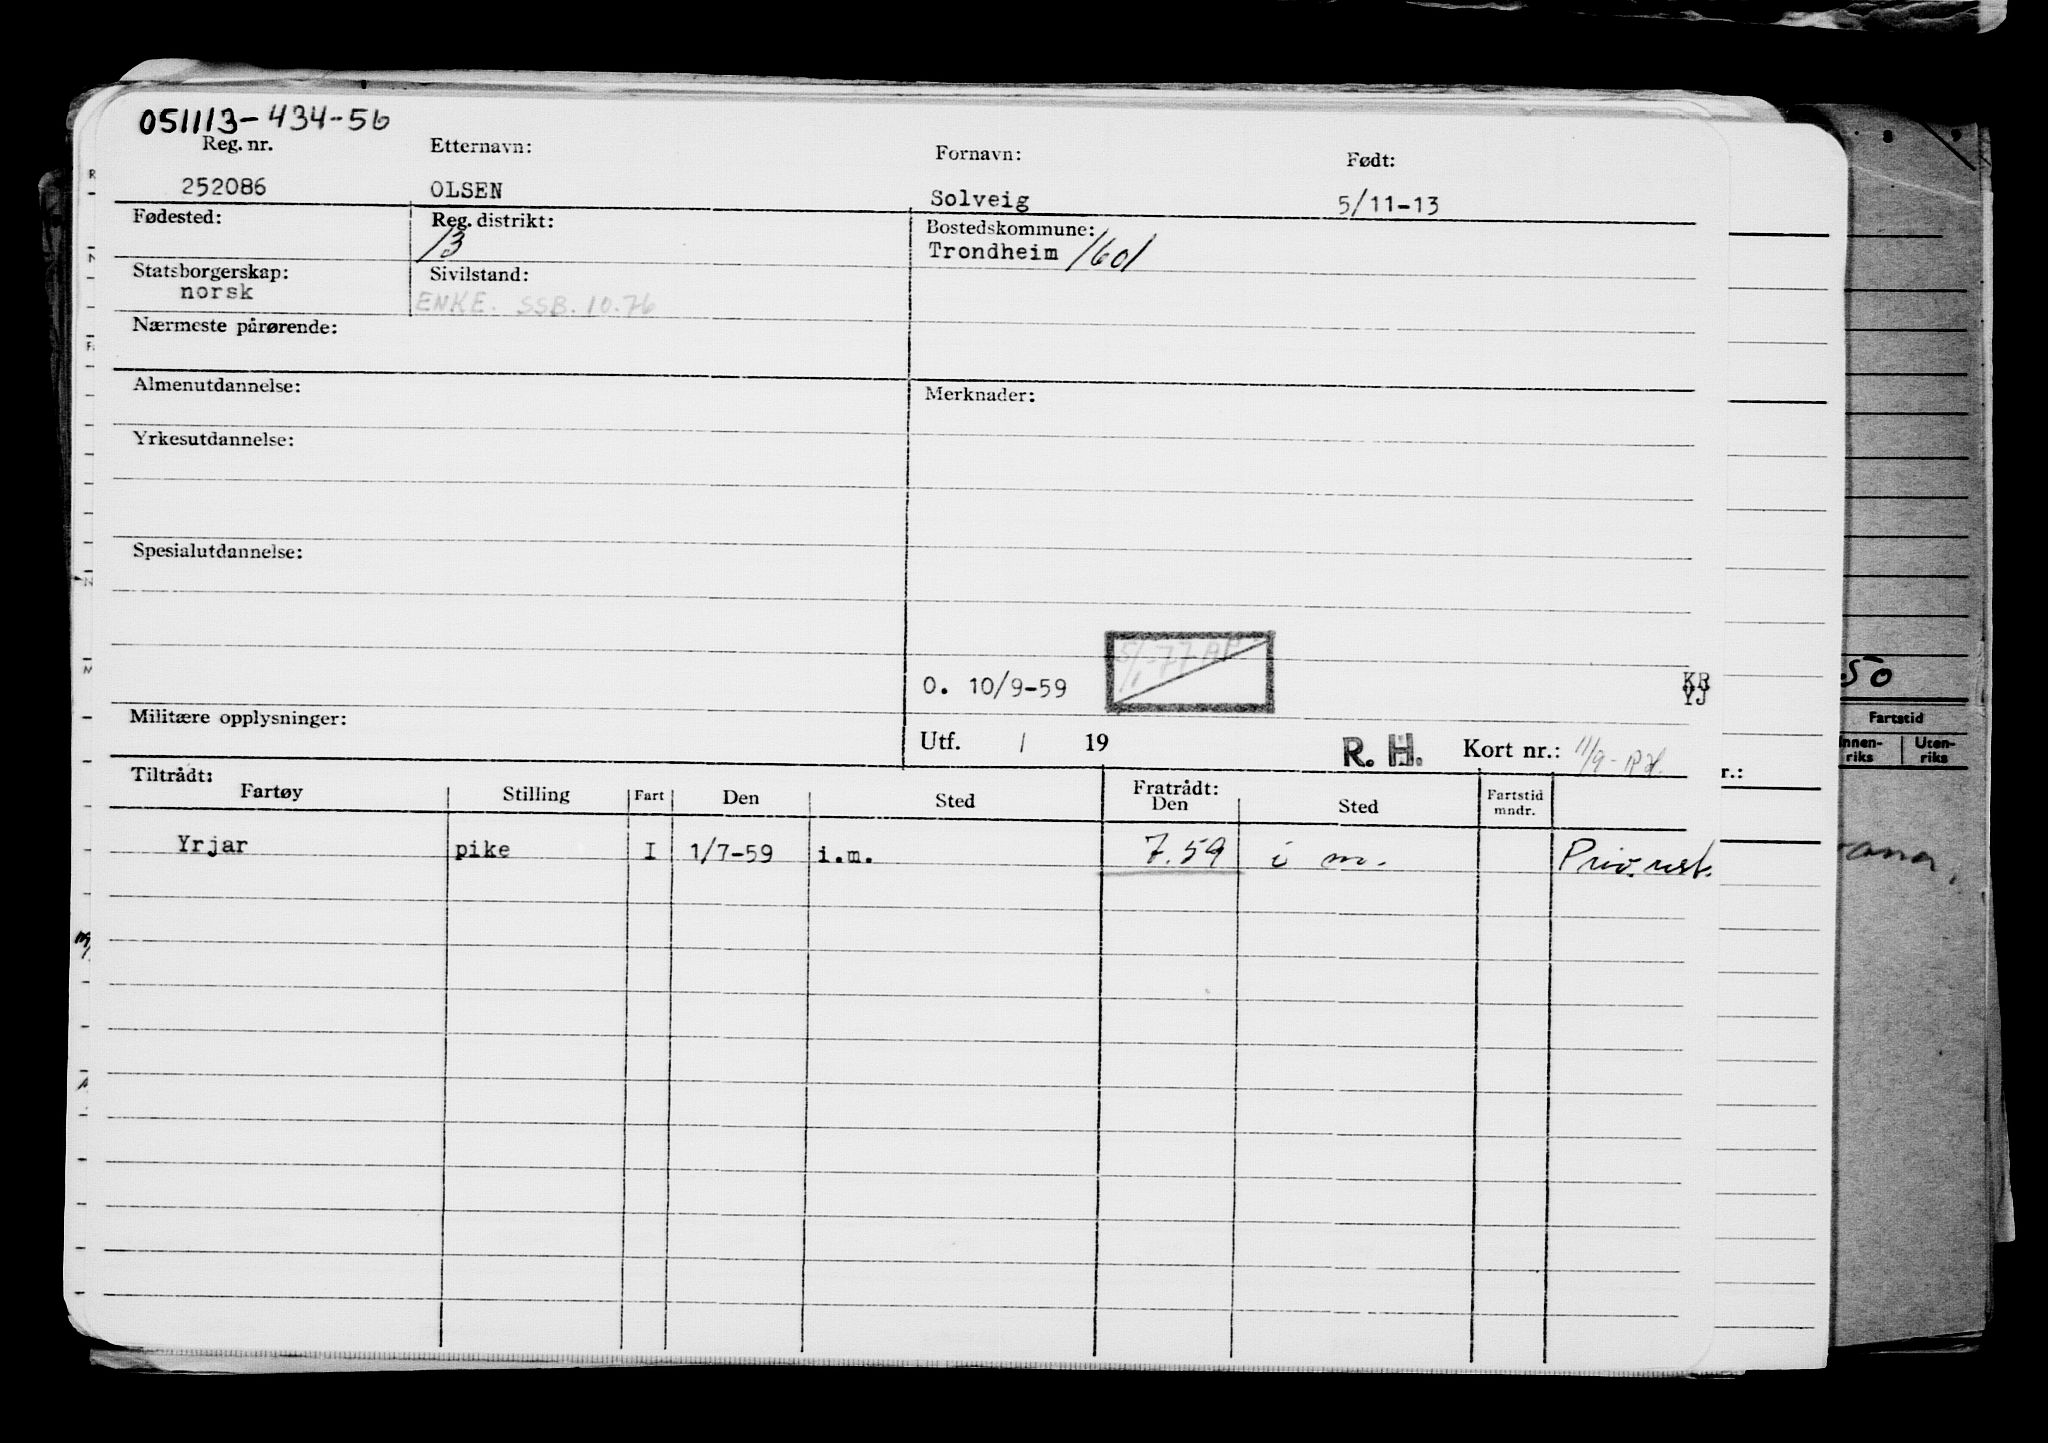 051113-434-56
Reg. nr. Etternavn: Fornavn: Født:
252086 OLSEN Solveig 5/11-13
Fødested: Reg. distrikt: Bostedskommune:
13 Trondheim 1601
Statsborgerskap: Sivilstand:
norsk ENKE. SSB. 10.76
Nærmeste pårørende:
Almenutdannelse: Merknader:
Yrkesutdannelse:
Spesialutdannelse:
O. 10/9-59 KR
YJ
Militære opplysninger:
Utf. / 19 R. H. Kort nr.: 11/9-
Tiltrådt: Fratrådt:
Fartøy Stilling Fart Den Sted Den Sted Fartstid mndr.
Yrjar pike I 1/7-59 i.m. 7.59 i m. Priv. rest.
50
Fartstid
Innen-riks Uten-riks
r.: